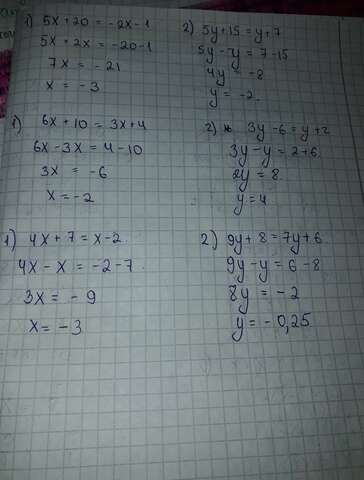 1) 5x+20 = -2x-1
5x+2x = -20-1
7x = -21
x = -3
2) 5y+15 = y+7
5y-y = 7-15
4y = -8
y = -2
1) 6x+10 = 3x+4
6x-3x = 4-10
3x = -6
x = -2
2) 3y-6 = y+2
3y-y = 2+6
2y = 8
y = 4
1) 4x+7 = x-2
4x-x = -2-7
3x = -9
x = -3
2) 9y+8 = 7y+6
9y-y = 6-8
8y = -2
y = -0,25